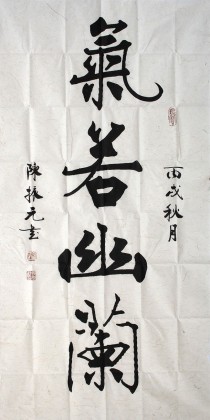 氣若幽蘭
丙戌秋月
陳振元書